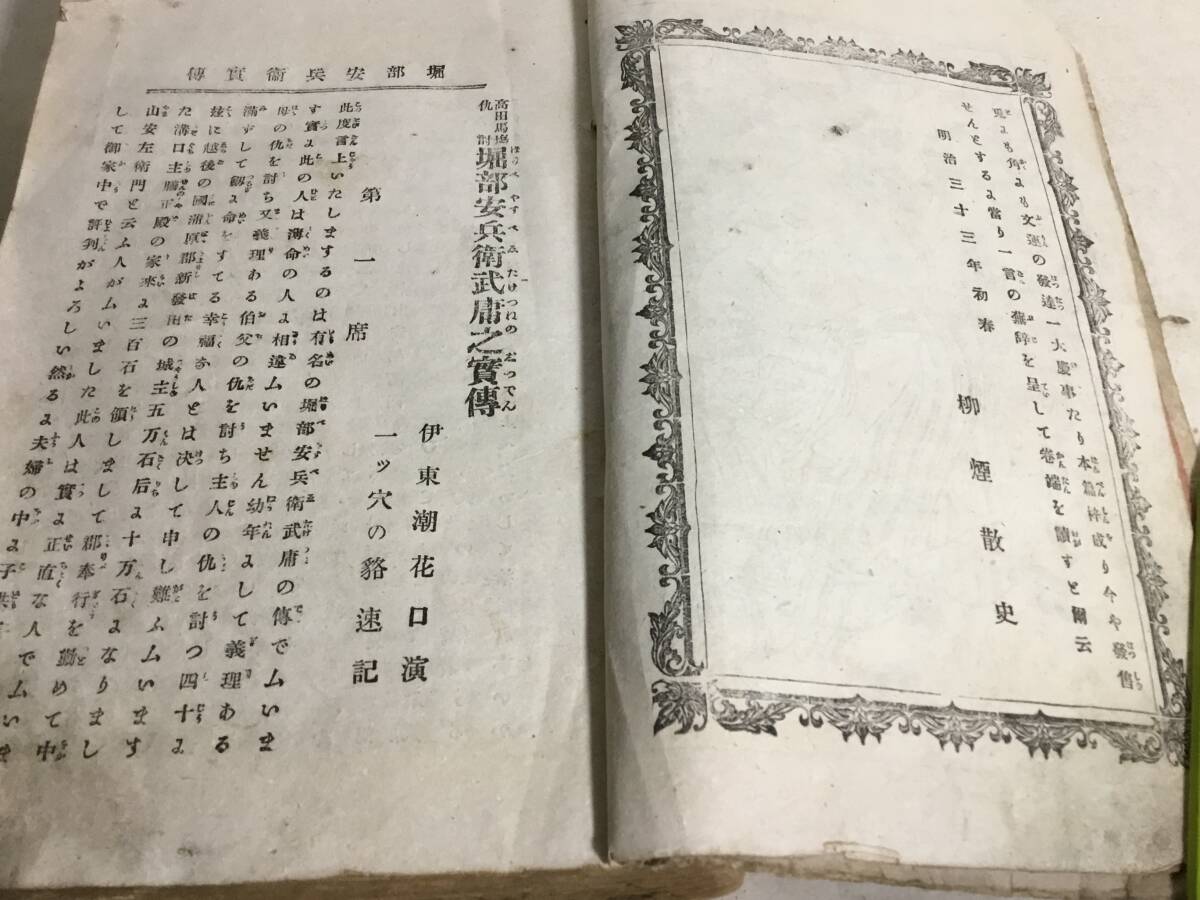 兎よも角よも文運の發達一大慶事たり本篇梓成り今や發售
せんとするよ當り一言の蕪辞を呈して卷端を瀆すと爾云
明治三十三年初春
柳煙散史
堀部安兵衞實傳
高田馬塲
仇討
堀部安兵衛武庸之實傳
伊東潮花口演
一ッ穴の貉速記
第一席
此度言上いたしまするのは有名の堀部安兵衛武庸の傳でムいま
す實よ此の人は薄命の人よ相違ムいません幼年よして義理ある
母の仇を討ち又義理ある伯父の仇を討ち主人の仇を討つ四十よ
滿ずして劔よ命をすてる幸福な人とは决して申し難ふムいます
玆に越後の國浦原郡新發田の城主五万石后よ十万石よなりまし
た溝口主膳正殿の家來よ三百石を領しまして郡奉行を勤めて中
山安左衛門と云ふ人がムいました此人は實よ正直な人でムいま
して御家中で評判がよろしい然るよ夫婦の中よ子供